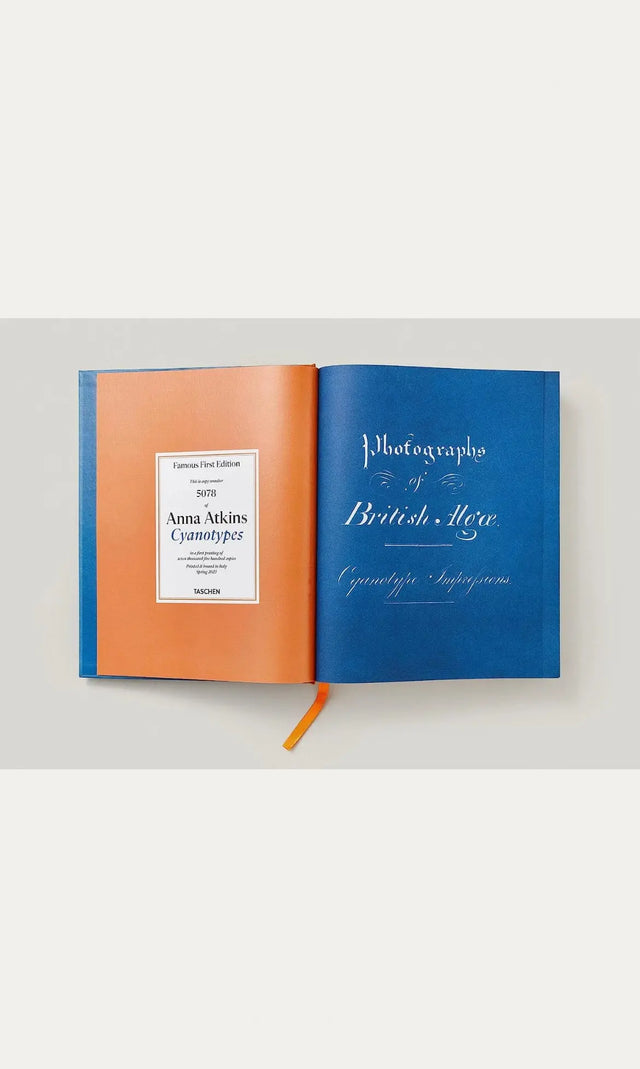 Famous First Edition
This is copy number
5078
of
Anna Atkins
Cyanotypes
in a first printing of
seven thousand five hundred copies
Printed & bound in Italy
Spring 2023
TASCHEN
Photographs
of
British Algæ.
Cyanotype Impressions.